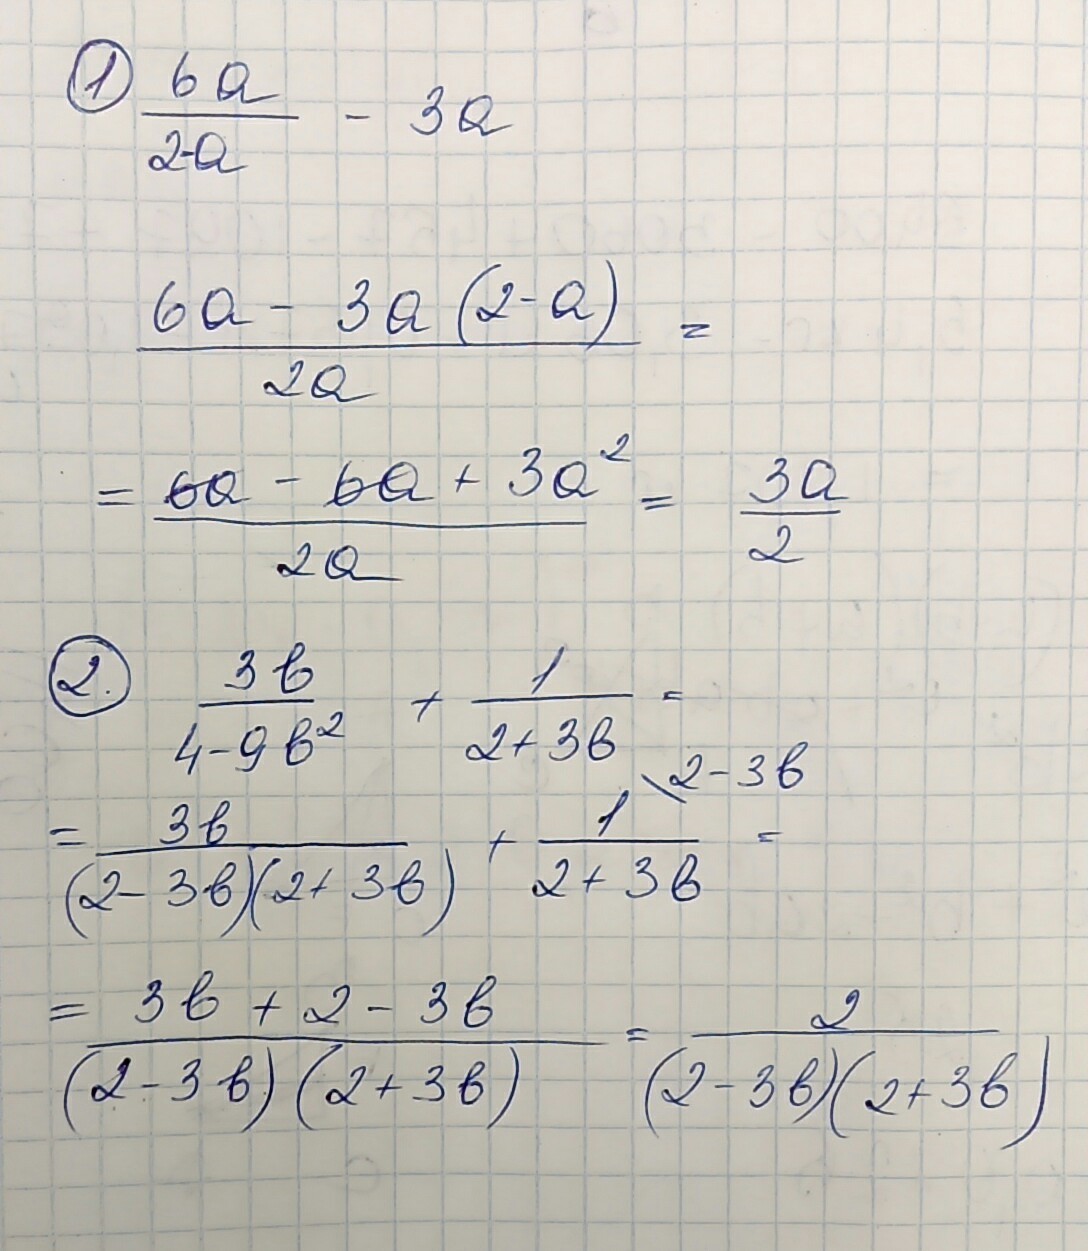 ① 6a/(2-a) - 3a
(6a - 3a(2-a))/(2a) =
= (6a - 6a + 3a²)/(2a) = 3a/2
②. 3b/(4-9b²) + 1/(2+3b) =
= 3b/((2-3b)(2+3b)) + 1\2-3b/(2+3b) =
= (3b + 2 - 3b)/((2-3b)(2+3b)) = 2/((2-3b)(2+3b))